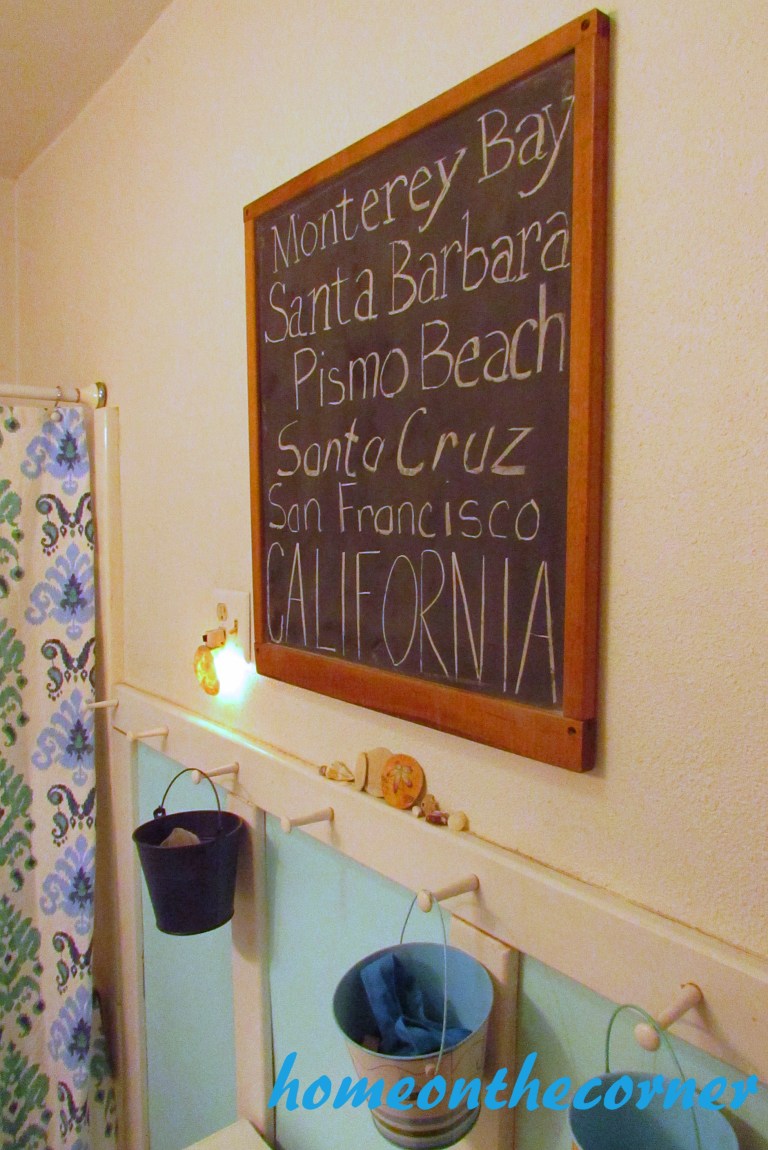 Monterey Bay
Santa Barbara
Pismo Beach
Santa Cruz
San Francisco
CALIFORNIA
homeonthecorner